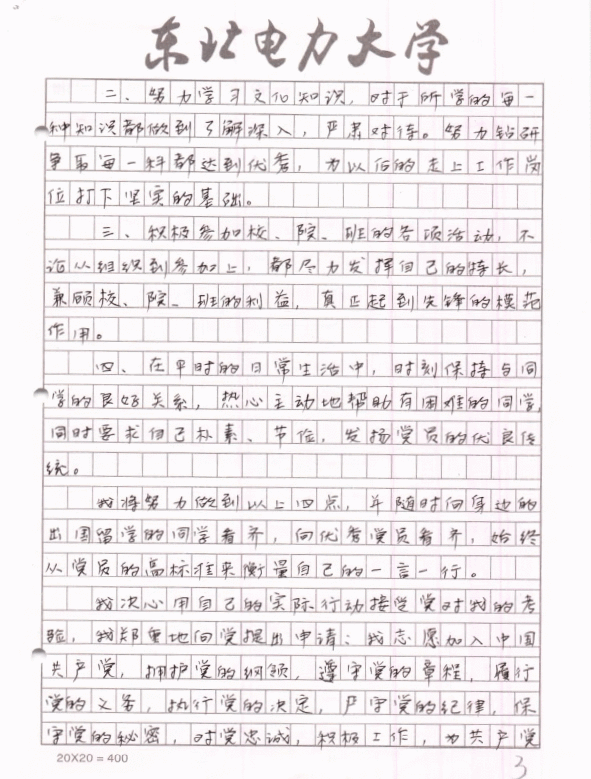 东北电力大学
二、努力学习文化知识，对于所学的每一
种知识都做到了解深入，严肃对待。努力钻研
争取每一科都达到优秀，为以后的走上工作岗
位打下坚实的基础。
三、积极参加校、院、班的各项活动，不
论从组织到参加上，都尽力发挥自己的特长，
兼顾校、院、班的利益，真正起到先锋的模范
作用。
四、在平时的日常生活中，时刻保持与同
学的良好关系，热心主动地帮助有困难的同学，
同时要求自己朴素、节俭，发扬党员的优良传
统。
我将努力做到以上四点，并随时向身边的
出国留学的同学看齐，向优秀党员看齐，始终
从党员的高标准来衡量自己的一言一行。
我决心用自己的实际行动接受党对我的考
验，我郑重地向党提出申请：我志愿加入中国
共产党，拥护党的纲领，遵守党的章程，履行
党的义务，执行党的决定，严守党的纪律，保
守党的秘密，对党忠诚，积极工作，为共产党
20X20=400
3